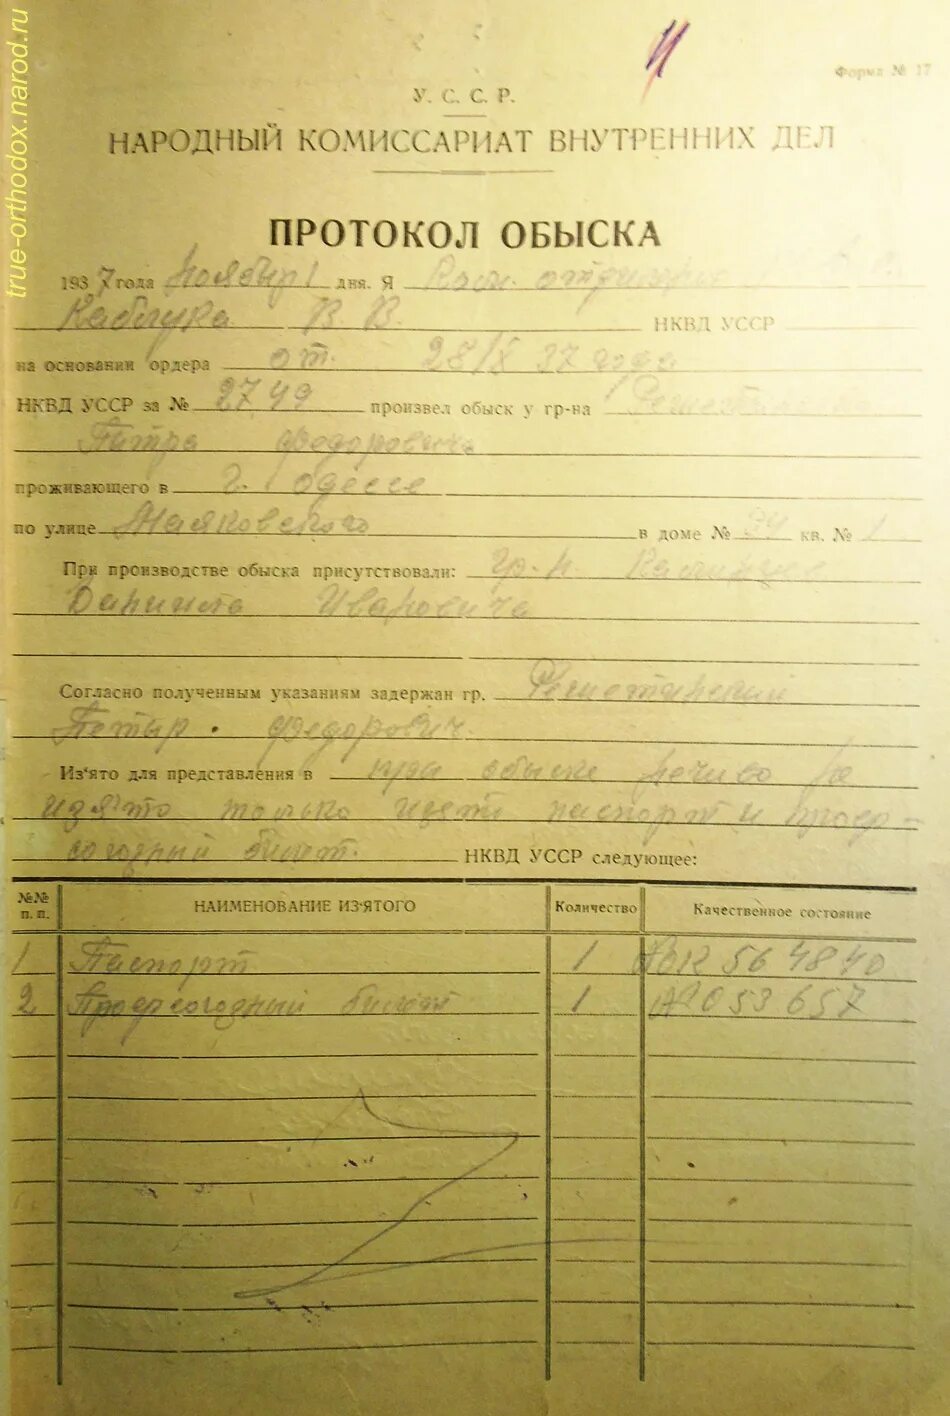 true-orthodox.narod.ru
Форма № 17
У. С. С. Р.
НАРОДНЫЙ КОМИССАРИАТ ВНУТРЕННИХ ДЕЛ
ПРОТОКОЛ ОБЫСКА
1937 года ноября 1 дня. Я
Каблука В. В. НКВД УССР
на основании ордера от 28/X 37 года
НКВД УССР за № 2749 произвел обыск у гр-на
Петра Федоровича
проживающего в г. Одессе
по улице Маяковского в доме № 34 кв. № 1
При производстве обыска присутствовали: гр-н.
Ивановича
Согласно полученным указаниям задержан гр. Решетинский
Петыр. Федорович.
Из'ято для представления в при обыске нечиво не
изято только паспорт и проф-
НКВД УССР следующее:
№№ п. п. НАИМЕНОВАНИЕ ИЗ'ЯТОГО Количество Качественное состояние
1 Паспорт 1 564840
2 билет 1 053657